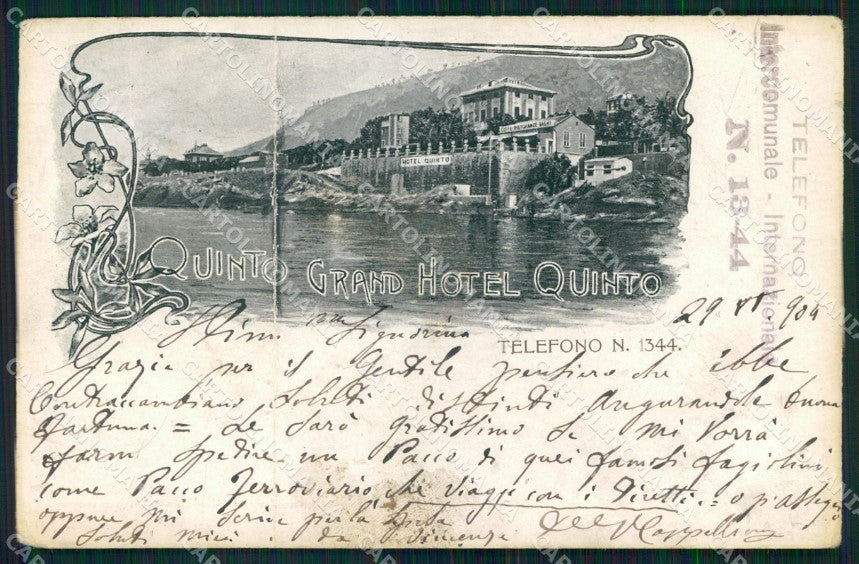 CAFFÈ RISTORANTE BAGNI
HOTEL QUINTO
QUINTO GRAND HOTEL QUINTO
TELEFONO N. 1344.
TELEFONO
Intercomunale - Internazionale
N. 1344
29 VI 904
Signorina
Grazie per il Gentile pensiero che ebbe
Contraccambiano Saluti distinti Augurandole buona
fortuna = Le sarò gratissimo se mi vorrà
farmi spedire un Pacco di quei famosi fagiolini
come Pacco Ferroviario che viaggi con i Diretti =
oppure mi scrive per la
Saluti miei e da
CARTOLINOMANIA